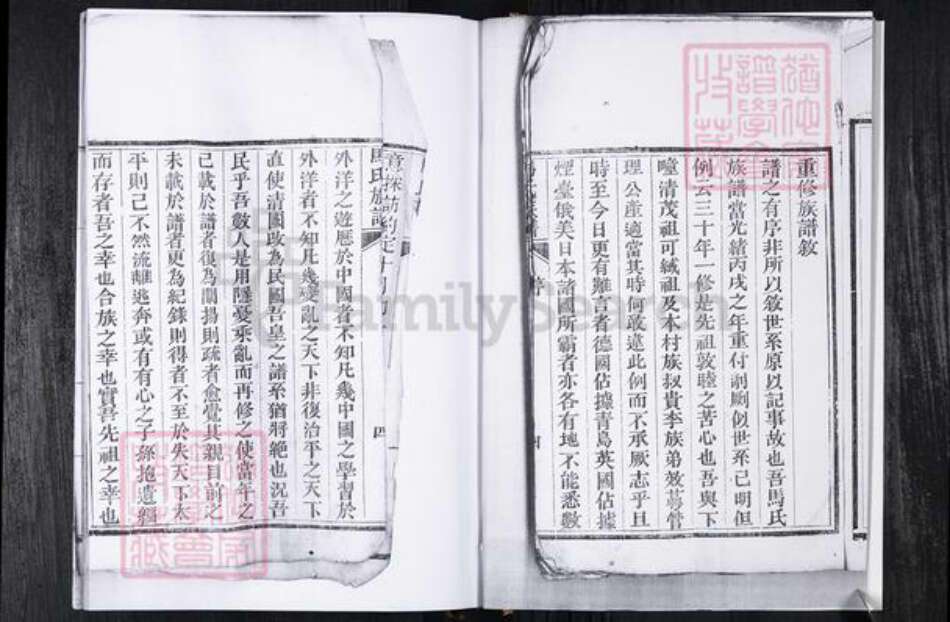 重修族譜敘
譜之有序非所以敘世系原以記事故也吾馬氏
族譜當光緒丙戌之年重付剞劂似世系已明但
例云三十年一修是先祖敦睦之苦心也吾與下
疃清茂祖可緘祖及本村族叔貴李族弟效曷管
理公産適當其時何敢違此例而不承厥志乎且
時至今日更有難言者德國佔據青島英國佔據
煙臺俄美日本諸國所霸者亦各有地不能悉數
序
四
馬氏族譜
外洋之遊歷於中國者不知凡幾中國之學習於
外洋者不知凡幾變亂之天下非復治平之天下
直使清國改為民國吾皇之譜系猶將絶也況吾
民乎吾數人是用隱憂乘亂而再修之使當年之
已載於譜者復為闡揚則疏者愈覺其親目前之
未載於譜者更為紀錄則得者不至於失天下太
平則已不然流離逃奔或有有心之子孫抱遺編
而存者吾之幸也合族之幸也實吾先祖之幸也
FamilySearch